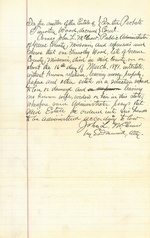 In the matter of the Estate of } In the Probate
Timothy Wood, deceased } Court.
Comes John L. McElhany, Public Administrator
of Greene County, Missouri, and represents and shows
that one Timothy Wood, late of Greene
County, Missouri, died in said County on or
about the 16th day of March, 1891, intestate,
without known relatives, leaving money, property,
papers and other estate in a situation exposed
to loss or damage and no
any known widow or heir in this state,
Wherefore said Administrator prays that
said Estate be ordered into his hands
to be administered according to law.
John L. McElhany
by Attys.